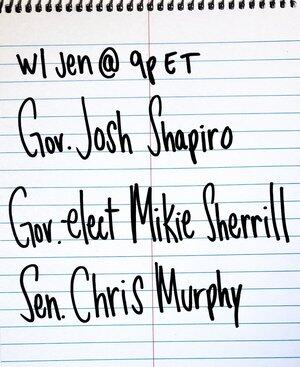 W/ Jen @ 9p ET
Gov. Josh Shapiro
Gov.-elect Mikie Sherrill
Sen. Chris Murphy